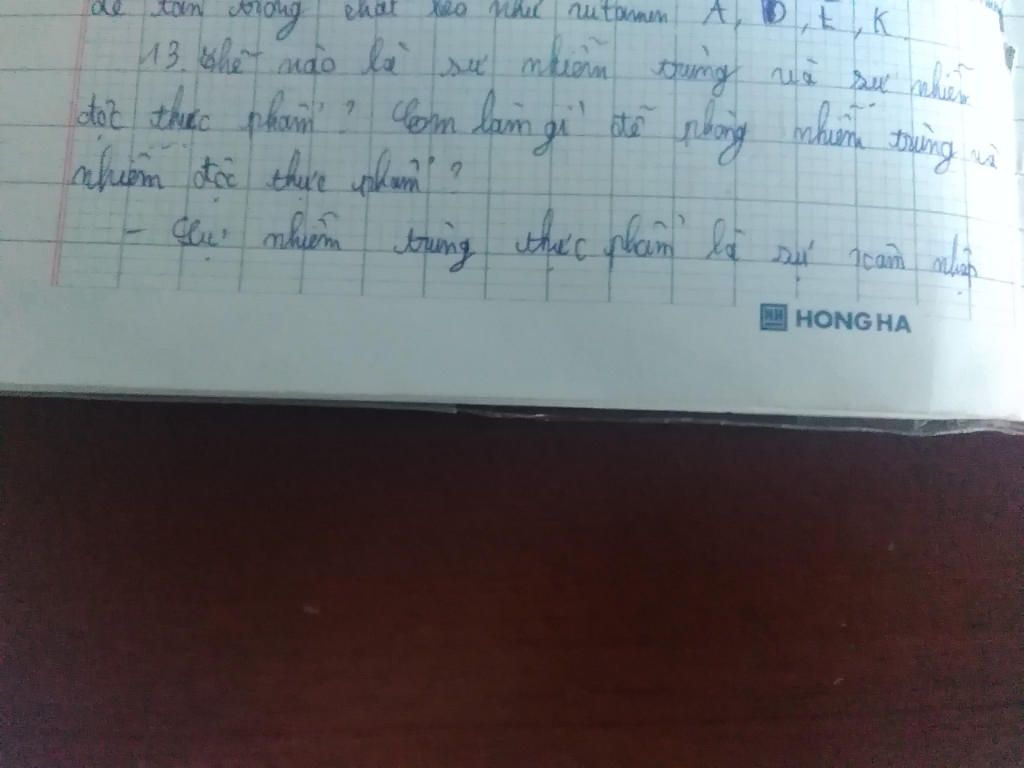 dễ tan trong chất béo như vitamin A, D, E, K.
13. Thế nào là sự nhiễm trùng và sự nhiễm
độc thực phẩm? Em làm gì để phòng nhiễm trùng và
nhiễm độc thực phẩm?
- Sự nhiễm trùng thực phẩm là sự xâm nhập
HONG HA